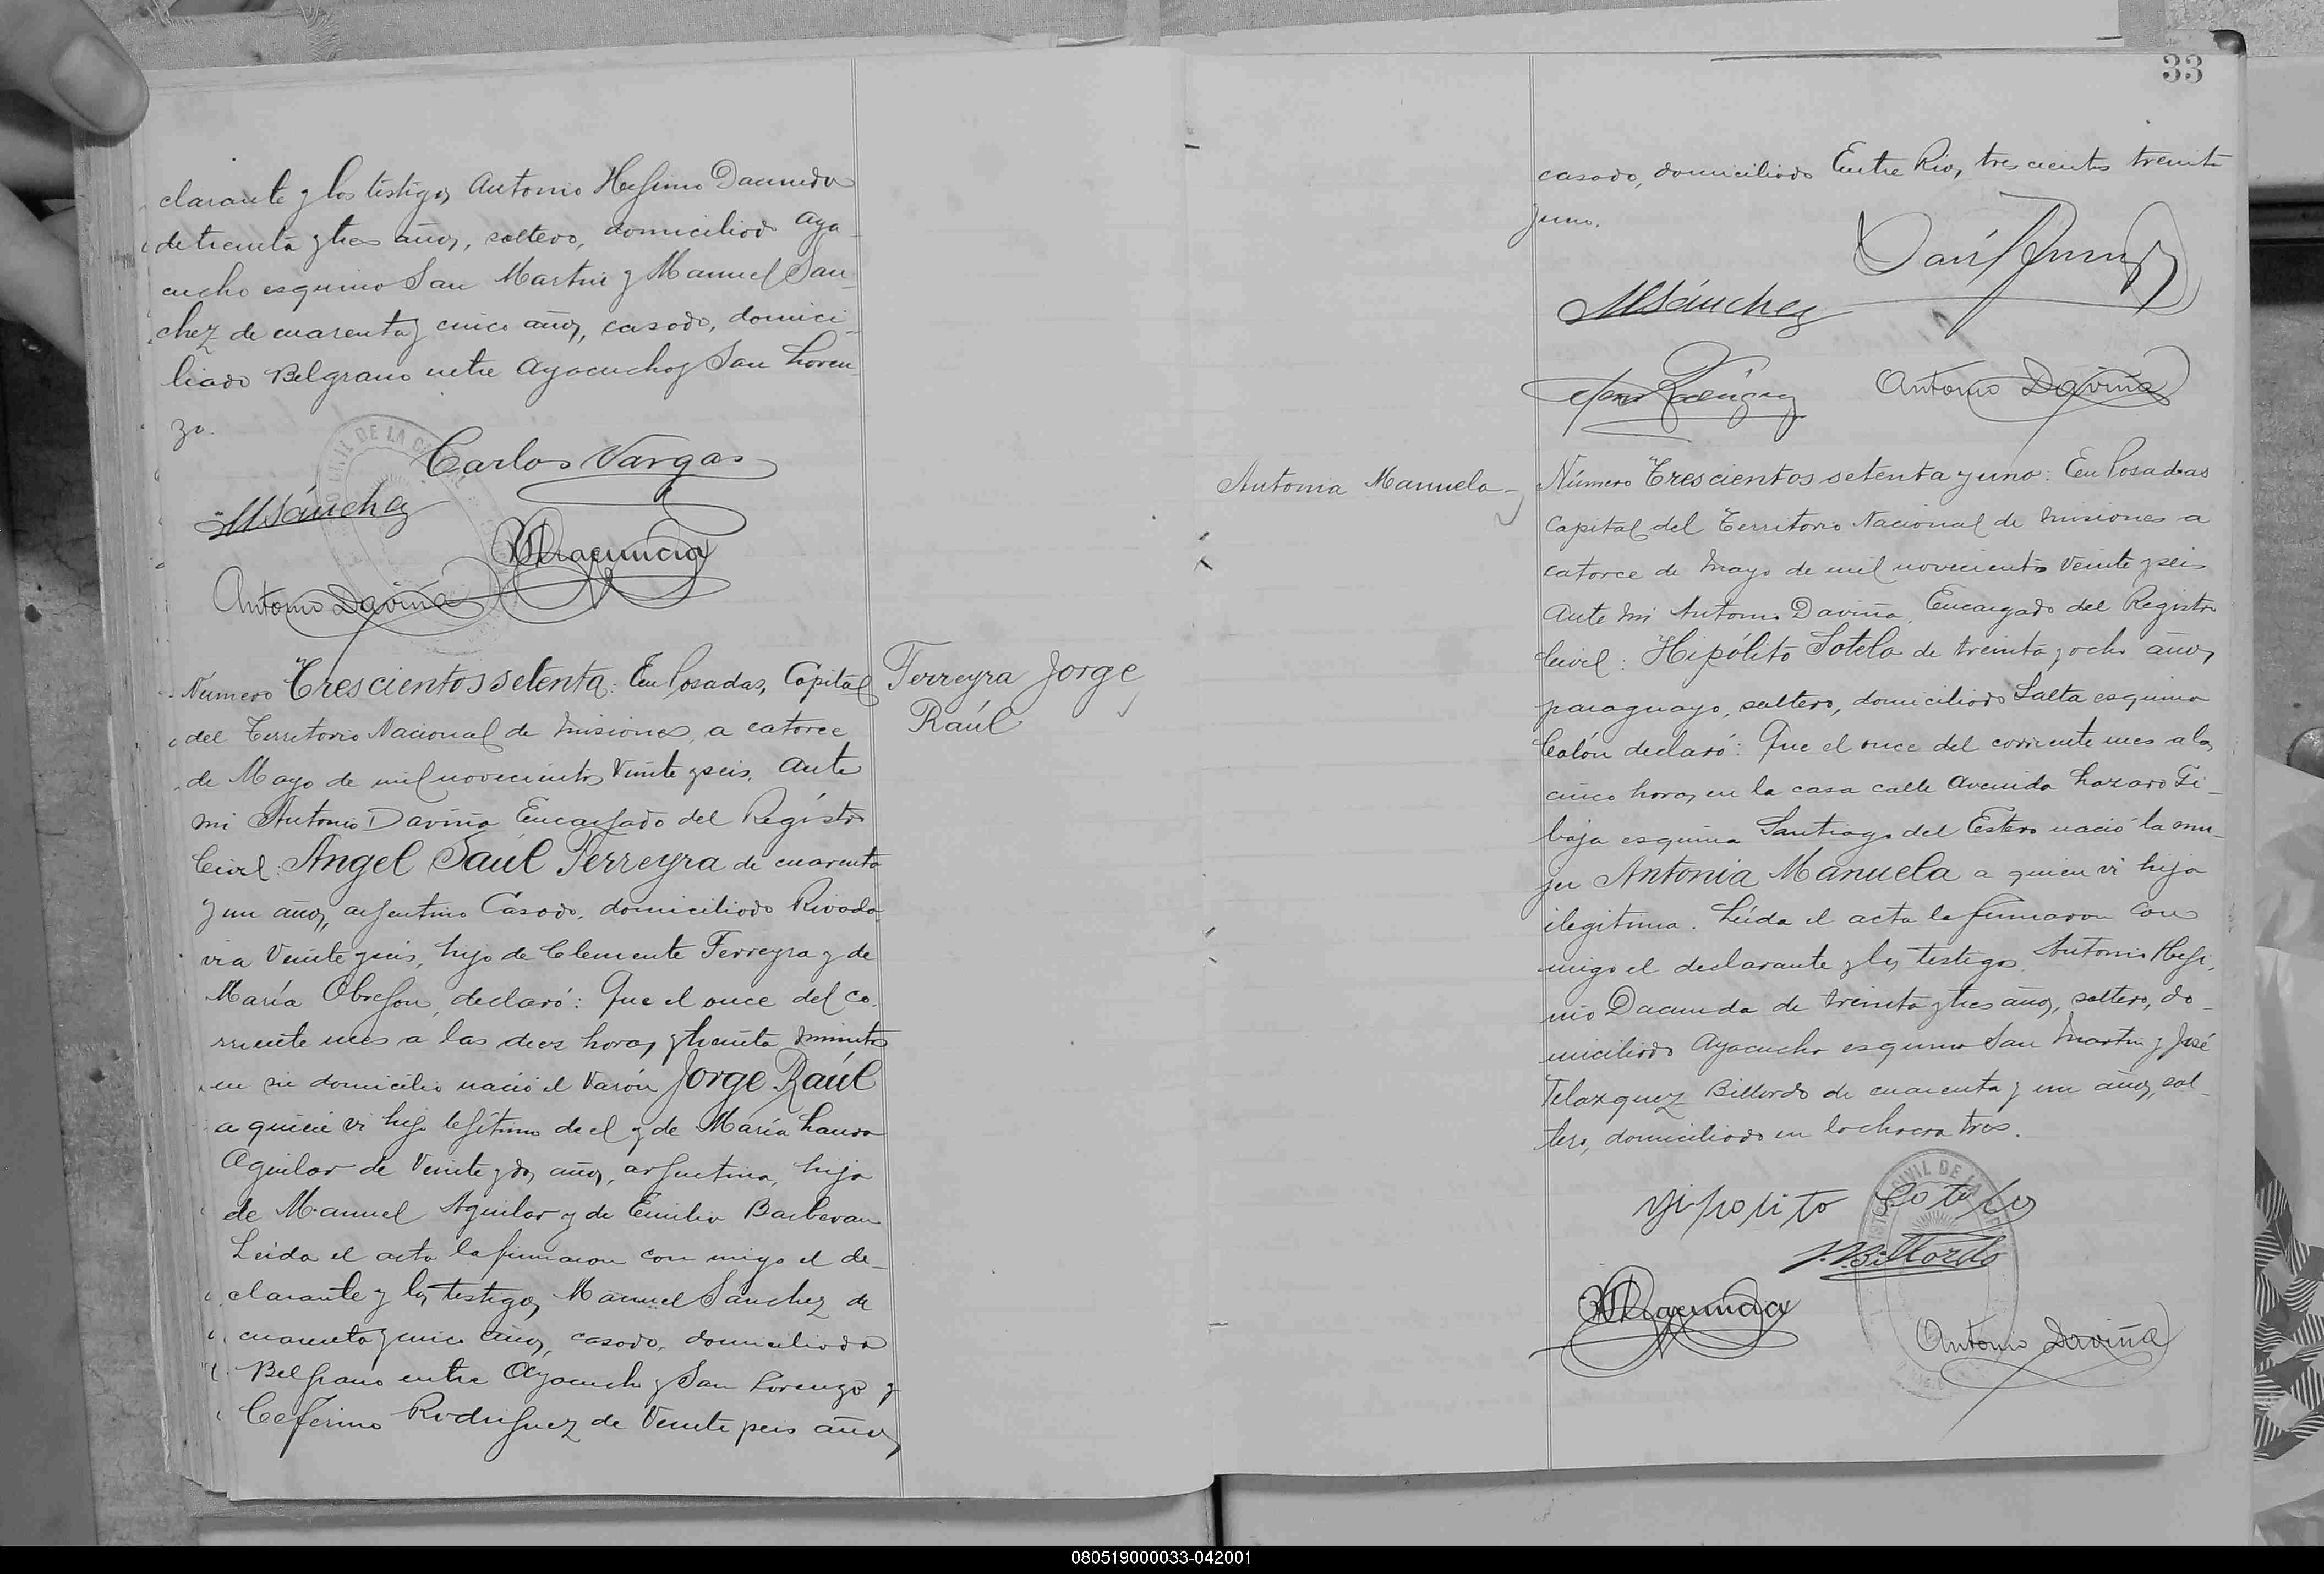 clarante y los testigos Antonio Higinio Dacunda
de treinta y tres años, soltero, domiciliado Aya-
cucho esquina San Martin y Manuel San-
chez de cuarenta y cinco años, casado, domici-
liado Belgrano entre Ayacucho y San Loren-
zo.
Carlos Vargas
MSánchez
Antonio Daviña
Número Trescientos setenta: En Posadas, Capital
del Territorio Nacional de Misiones, a catorce
de Mayo de mil novecientos veinte y seis. Ante
mi Antonio Daviña Encargado del Registro
Civil: Angel Saúl Ferreyra de cuarenta
y un años, argentino Casado, domiciliado Rivada-
via Veinte y seis, hijo de Clemente Ferreyra y de
María Obregon, declaró: Que el once del co-
rriente mes a las diez horas y treinta minutos
en su domicilio nació el Varón Jorge Raúl
a quien vi hijo legítimo de el y de María Laura
Aguilar de Veinte y dos años, argentina, hija
de Manuel Aguilar y de Emilia Barberan
Leída el acta la firmaron con migo el de-
clarante y los testigos Manuel Sánchez de
cuarenta y cinco años, casado, domiciliado
Belgrano entre Ayacucho y San Lorenzo y
Ceferino Rodriguez de Veinte y seis años,
Ferreyra Jorge
Raúl
33
casado, domiciliado Entre Rios, trescientos treinta
y uno.
MSánchez
Antonio Daviña
Antonia Manuela
Número Trescientos setenta y uno: En Posadas
Capital del Territorio Nacional de Misiones a
catorce de Mayo de mil novecientos veinte y seis
Ante mi Antonio Daviña, Encargado del Registro
Civil: Hipólito Sotelo de treinta y ocho años,
paraguayo, soltero, domiciliado Salta esquina
Colón declaró: Que el once del corriente mes a las
cinco horas, en la casa calle Avenida Lazaro Gi-
baja esquina Santiago del Estero nació la mu-
jer Antonia Manuela a quien vi hija
ilegitima. Leída el acta la firmaron con
migo el declarante y los testigos Antonio Higi-
nio Dacunda de treinta y tres años, soltero, do-
miciliado Ayacucho esquina San Martin y José
Velazquez Billordo de cuarenta y un años, sol-
tero, domiciliado en la chacra tres.
Ypolito Sotelo
Billordo
Antonio Daviña
080519000033-042001